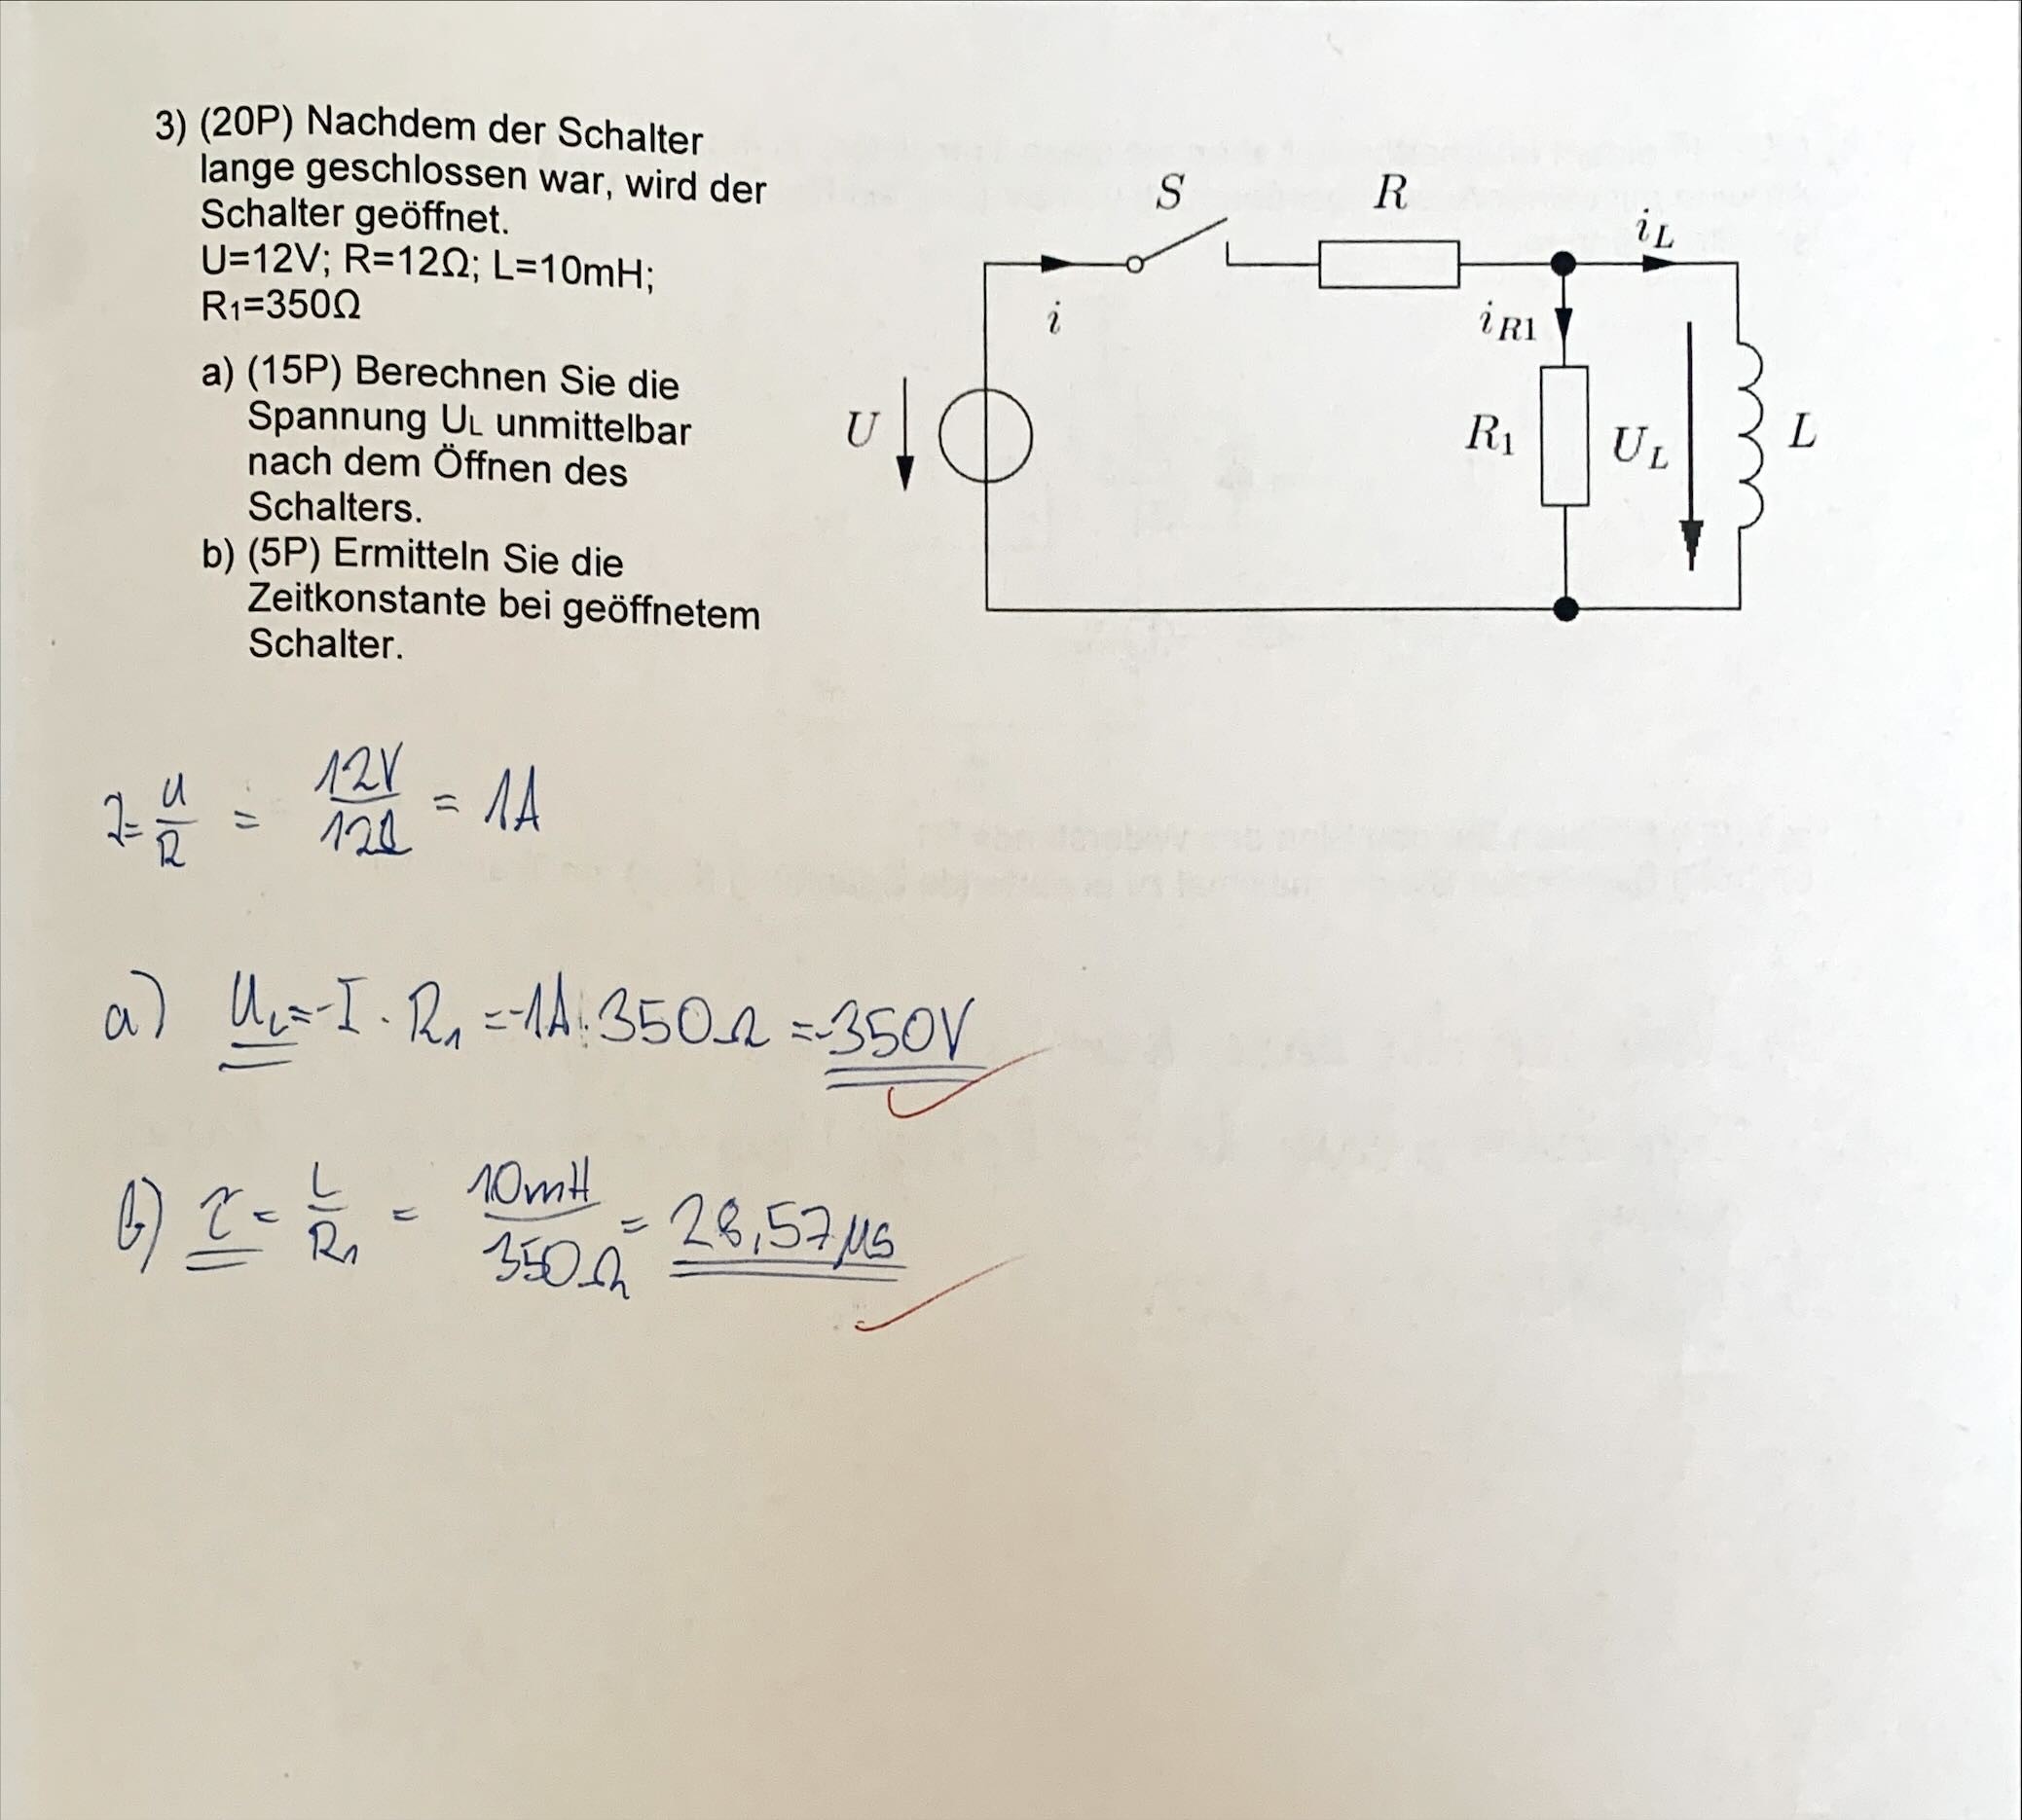 3) (20P) Nachdem der Schalter
lange geschlossen war, wird der
Schalter geöffnet.
U=12V; R=12Ω; L=10mH;
R₁=350Ω
a) (15P) Berechnen Sie die
Spannung UL unmittelbar
nach dem Öffnen des
Schalters.
b) (5P) Ermitteln Sie die
Zeitkonstante bei geöffnetem
Schalter.
S
R
i_L
i
i_R1
U
R₁
U_L
L
I = U/R = 12V/12Ω = 1A
a) U_L = -I · R₁ = -1A · 350Ω = -350V
b) τ = L/R₁ = 10mH/350Ω = 28,57µs